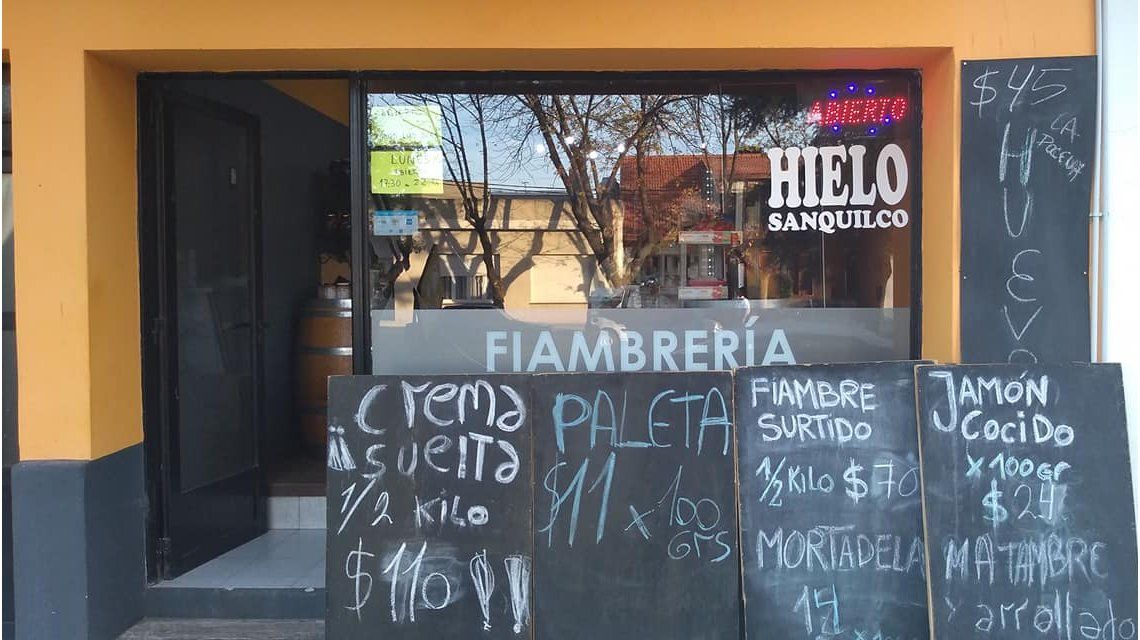 LUNES
17:30
ABIERTO
HIELO
SANQUILCO
FIAMBRERÍA
$45
LA
HUEVO
Crema
suelta
1/2 kilo
$110
PALETA
$11 x 100
GRS
FIAMBRE
SURTIDO
1/2 KILO $70
MORTADELA
JAMÓN
COCIDO
x 100gr
$24
MATAMBRE
arrollado